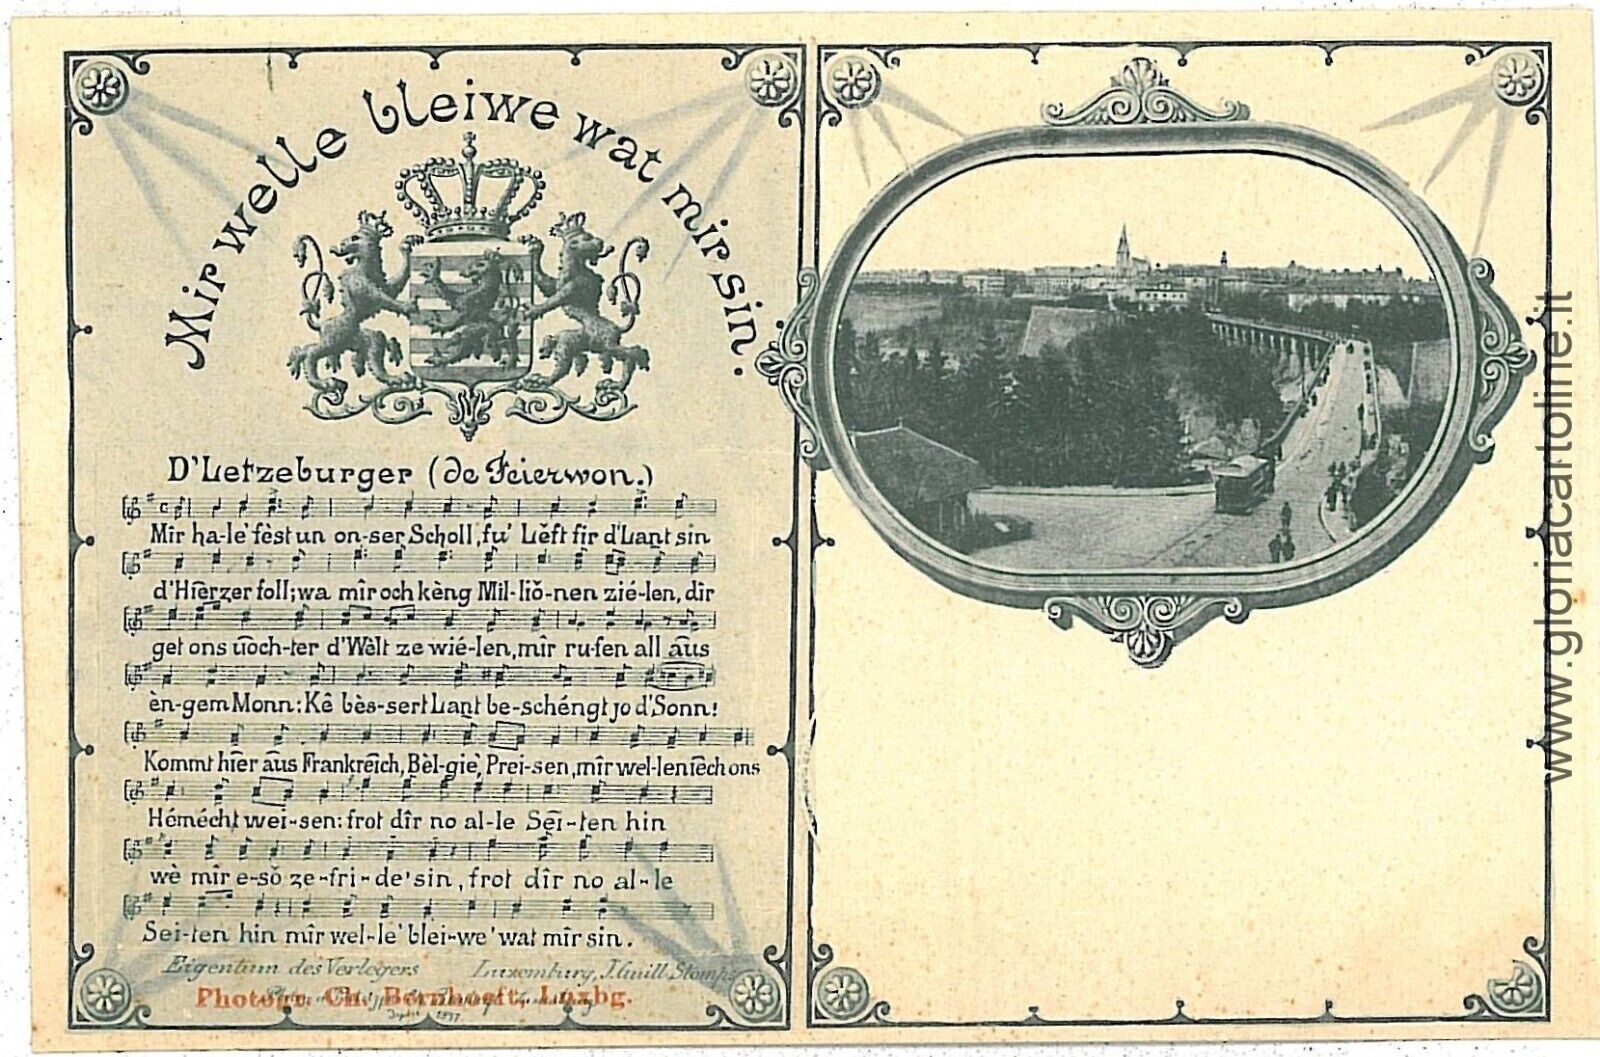 Mir welle bleiwe wat mir sin.
D'Letzeburger (de Feierwon.)
Mîr ha-le' fèst un on-ser Scholl, fu' Lĕft fir d'Lant sin
d'Hierzer foll; wa mîr och kèng Mil-liŏ-nen zié-len, dîr
get ons ūoch-ter d'Wèlt ze wié-len, mîr ru-fen all āus
èn-gem Monn: Kê bès-sert Lant be-schéngt jo d'Sonn!
Kommt hīer āus Frankrēich, Bèl-giè, Prei-sen, mîr wel-len īech ons
Hémécht wei-sen: frot dîr no al-le Sēi-ten hin
wè mîr e-sŏ ze-fri-de' sin, frot dîr no al-le
Sei-ten hin mîr wel-le' blei-we' wat mîr sin.
Eigentum des Verlegers Luxemburg, J. Guill. Stomps
Photogr. Ch. Bernhoeft, Luxbg.
1897
www.gloriacartoline.it